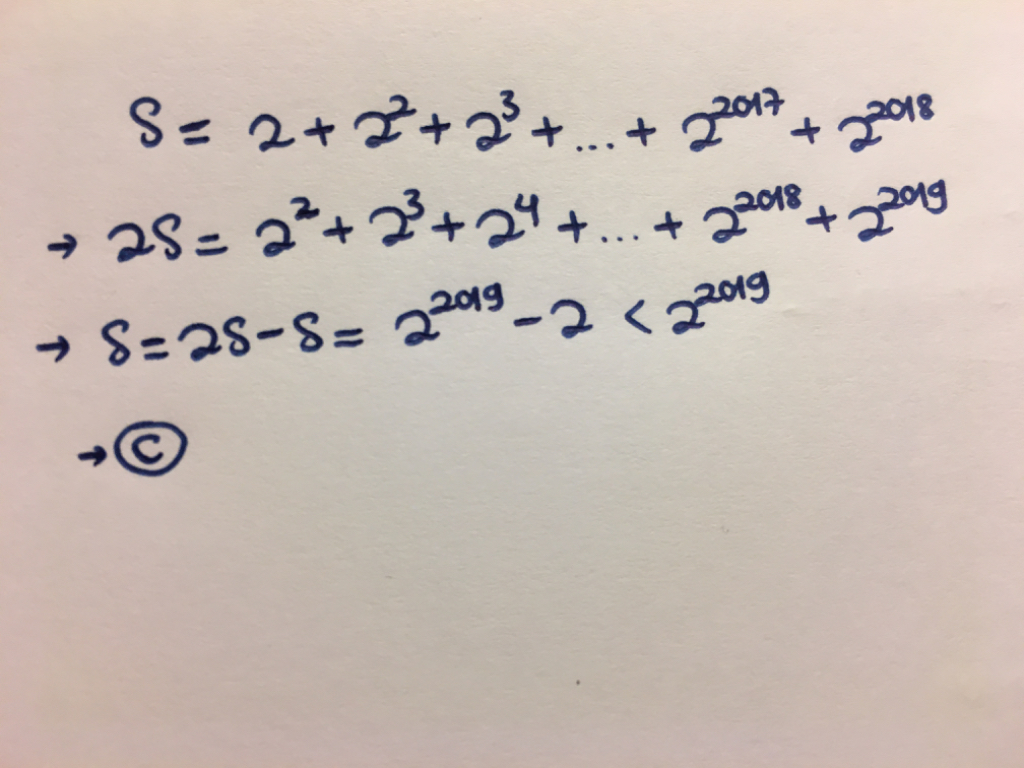 S = 2 + 2² + 2³ + ... + 2²⁰¹⁷ + 2²⁰¹⁸
→ 2S = 2² + 2³ + 2⁴ + ... + 2²⁰¹⁸ + 2²⁰¹⁹
→ S = 2S - S = 2²⁰¹⁹ - 2 < 2²⁰¹⁹
→ Ⓒ